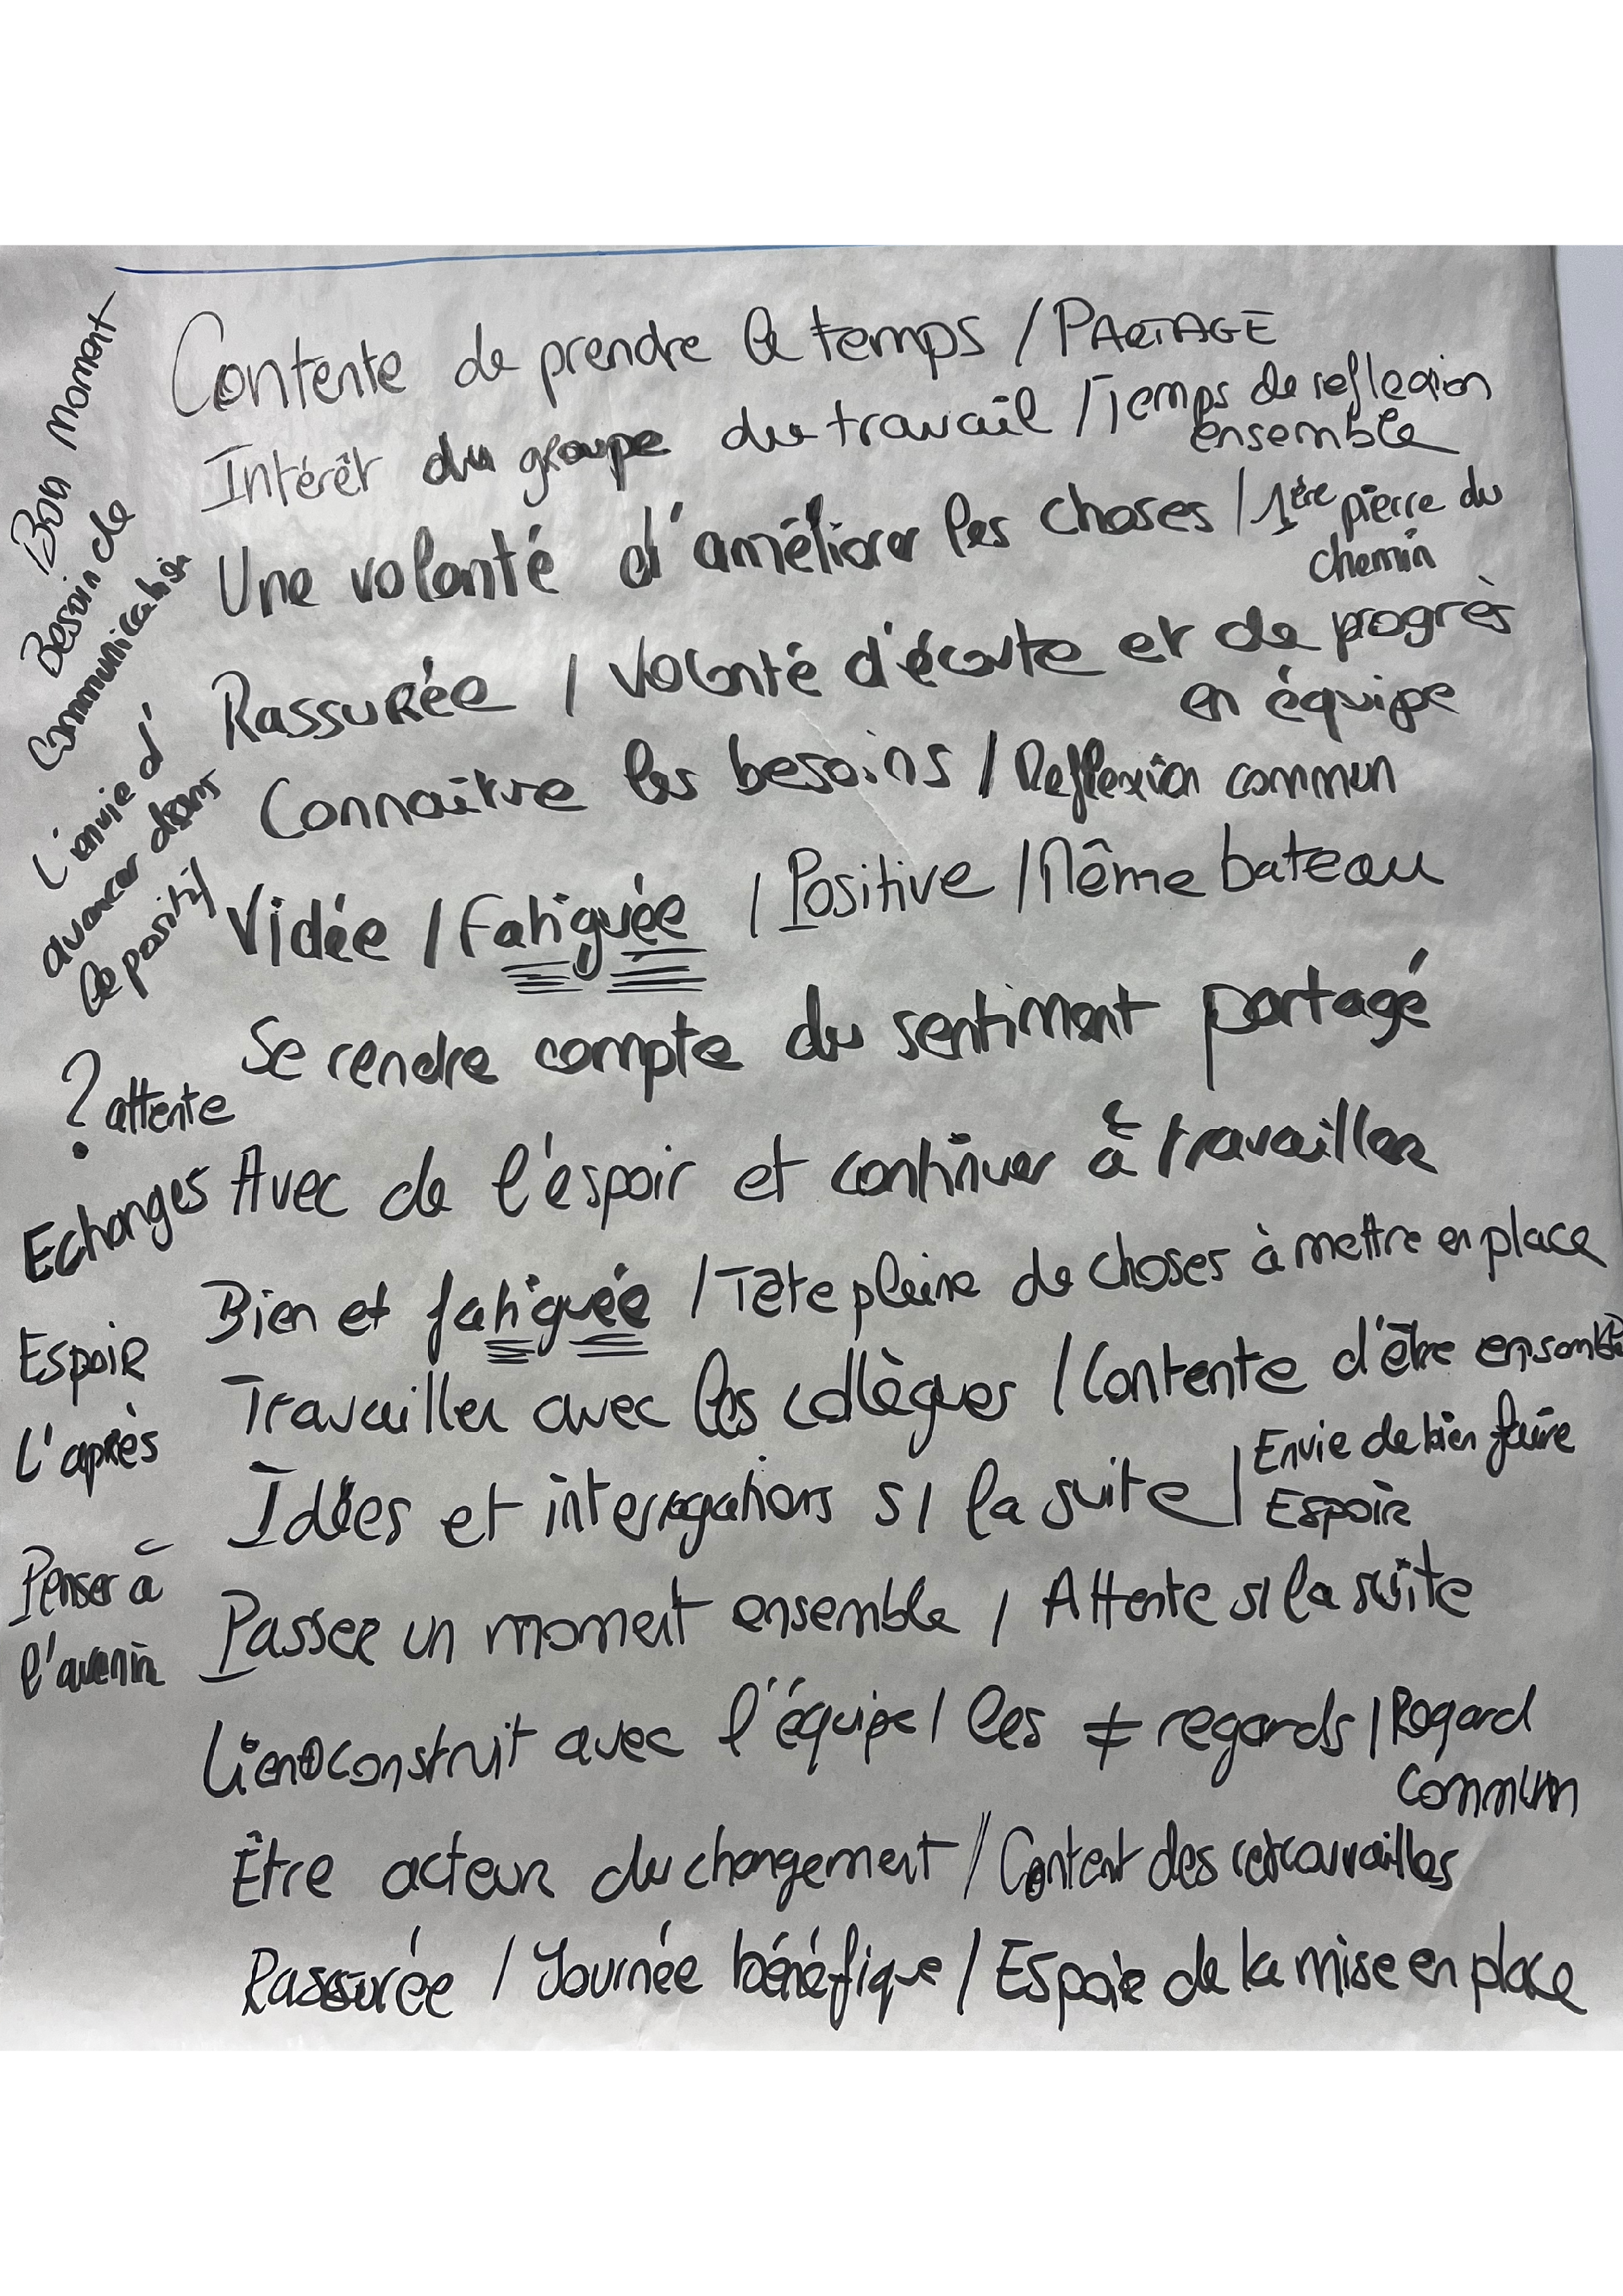 Contente de prendre le temps / PARTAGE
Intérêt du groupe du travail / Temps de reflexion
ensemble
Une volonté d'améliorer les choses / 1ère pierre du
chemin
Rassurée / Volonté d'écoute et de progrès
en équipe
Connaitre les besoins / Reflexion commun
Vidée / Fatiguée / Positive / Même bateau
Se rendre compte du sentiment partagé
Avec de l'espoir et continuer à travailler
Bien et fatiguée / Tête pleine de choses à mettre en place
Travailler avec les collègues / Contente d'être ensemble
Idées et interrogations s/ la suite / Envie de bien faire
Espoir
Passer un moment ensemble / Attente s/ la suite
Lien construit avec l'équipe / les ≠ regards / Regard
commun
Être acteur du changement / Content des retrouvailles
Rassurée / Journée bénéfique / Espoir de la mise en place
Bon moment
Besoin de
communication
L'envie d'
avancer dans
le positif
? attente
Echanges
Espoir
L'après
Penser à
l'avenir